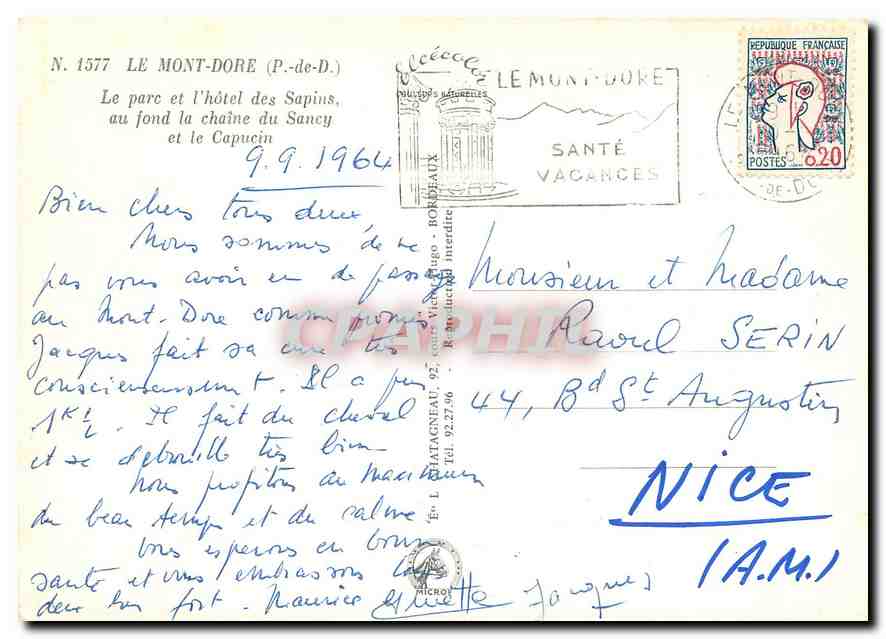 N. 1577 LE MONT-DORE (P.-de-D.)
Le parc et l'hôtel des Sapins,
au fond la chaîne du Sancy
et le Capucin
9.9.1964
Bien chers tous deux,
Nous sommes de ne
pas vous avoir eu de passage
au Mont-Dore comme promis
Jacques fait sa cure très
consciencieusement. Il a pris
1K 1/2. Il fait du cheval
et se débrouille très bien
Nous profitons au maximum
du beau temps et du calme
Vous espérons en bonne
santé et vous embrassons tous
deux bien fort. Maurice Ginette Jacques
Alcécolor
COULEURS NATURELLES
LE MONT-DORE
SANTÉ
VACANCES
REPUBLIQUE FRANÇAISE
POSTES 0,20
Monsieur et Madame
Raoul SERIN
44, Bd St Augustin
NICE
(A.M.)
Én L. CHATAGNEAU, 92, cours Victor Hugo - BORDEAUX
Tél. 92.27.96 - Reproduction interdite
MICRO
CPAPHIL